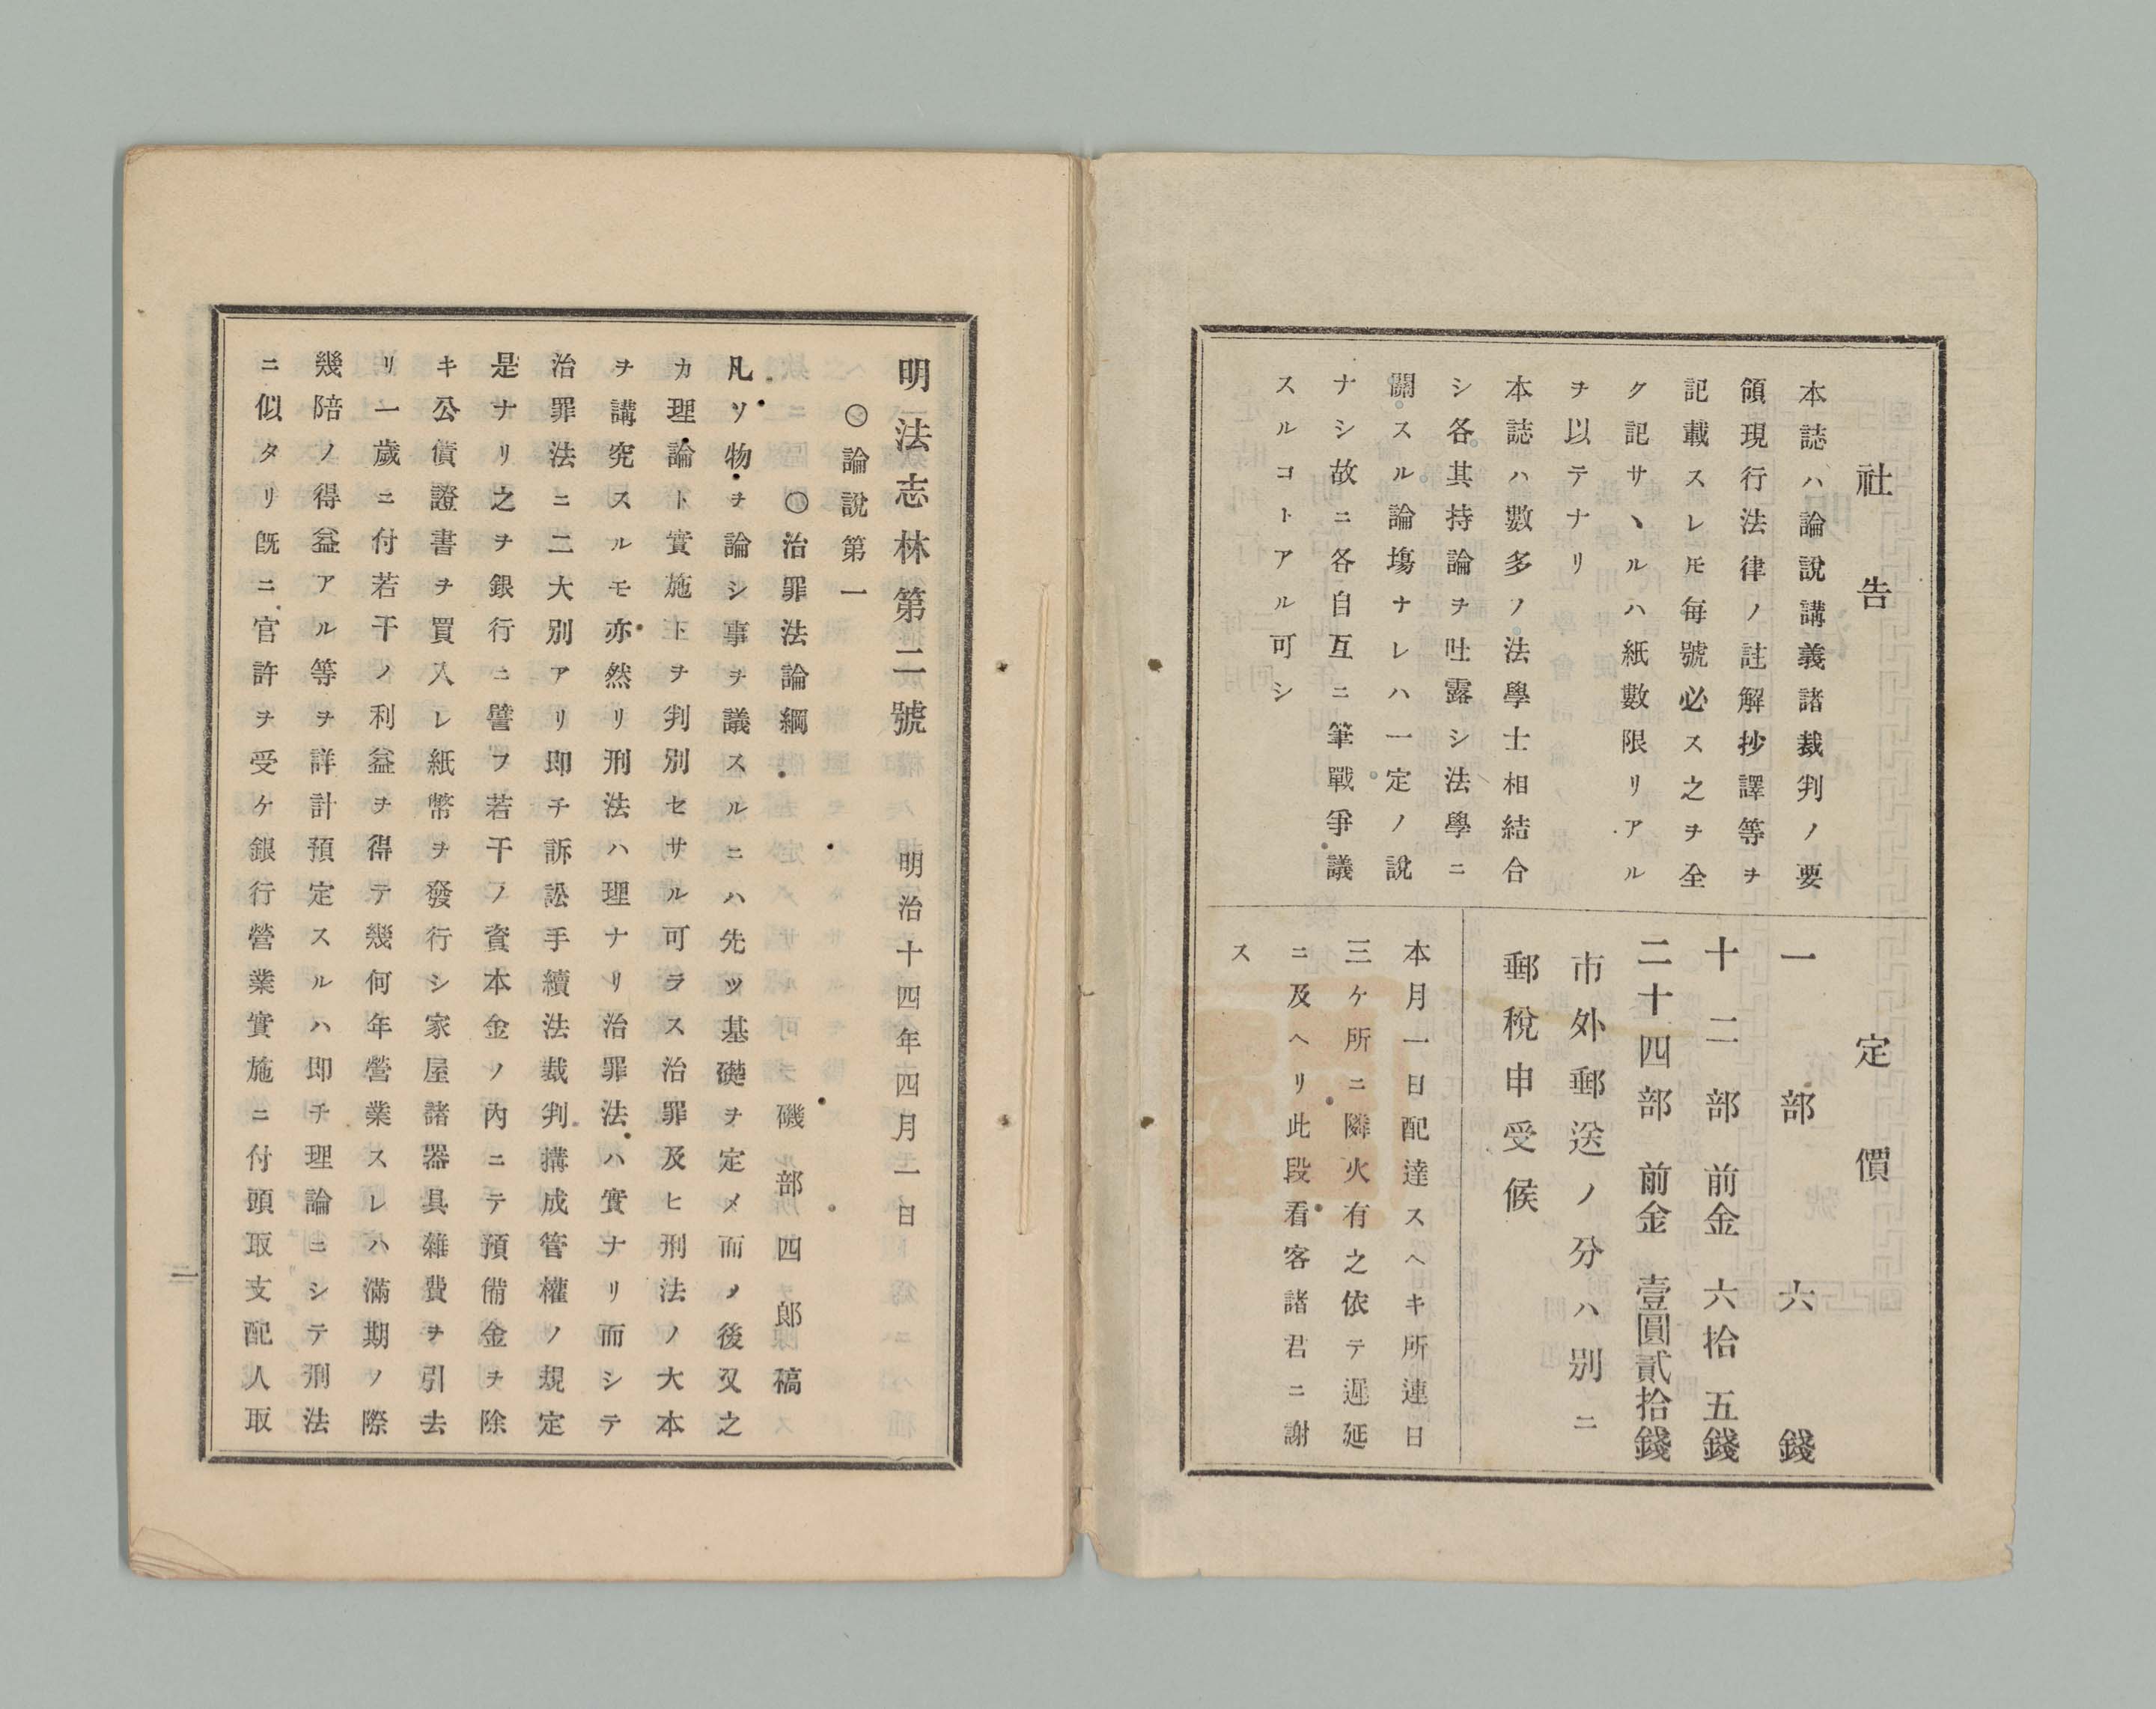 社告
本誌ハ論說講義諸裁判ノ要
領現行法律ノ註解抄譯等ヲ
記載スレ𪜈毎號必ス之ヲ全
ク記サヽルハ紙數限リアル
ヲ以テナリ
本誌ハ數多ノ法學士相結合
シ各其持論ヲ吐露シ法學ニ
關スル論塲ナレハ一定ノ說
ナシ故ニ各自互ニ筆戰爭議
スルコトアル可シ
定價
一部 六錢
十二部 前金 六拾五錢
二十四部 前金 壹圓貳拾錢
市外郵送ノ分ハ別ニ
郵稅申受候
本月一日配達スヘキ所連日
三ケ所ニ隣火有之依テ遲延
ニ及ヘリ此段看客諸君ニ謝
ス
明法志林第二號 明治十四年四月一日
〇論說第一
〇治罪法論綱 磯部四郎稿
凡ソ物ヲ論シ事ヲ議スルニハ先ツ基礎ヲ定メ而ノ後又之
カ理論ト實施トヲ判別セサル可ラス治罪及ヒ刑法ノ大本
ヲ講究スルモ亦然リ刑法ハ理ナリ治罪法ハ實ナリ而シテ
治罪法ニ二大別アリ即チ訴訟手續法裁判搆成管權ノ規定
是ナリ之ヲ銀行ニ譬フ若干ノ資本金ノ內ニテ預備金ヲ除
キ公債證書ヲ買入レ紙幣ヲ發行シ家屋諸器具雜費ヲ引去
リ一歲ニ付若干ノ利益ヲ得テ幾何年營業スレハ滿期ノ際
幾陪ノ得益アル等ヲ詳計預定スルハ即チ理論ニシテ刑法
ニ似タリ旣ニ官許ヲ受ケ銀行營業實施ニ付頭取支配人取
一